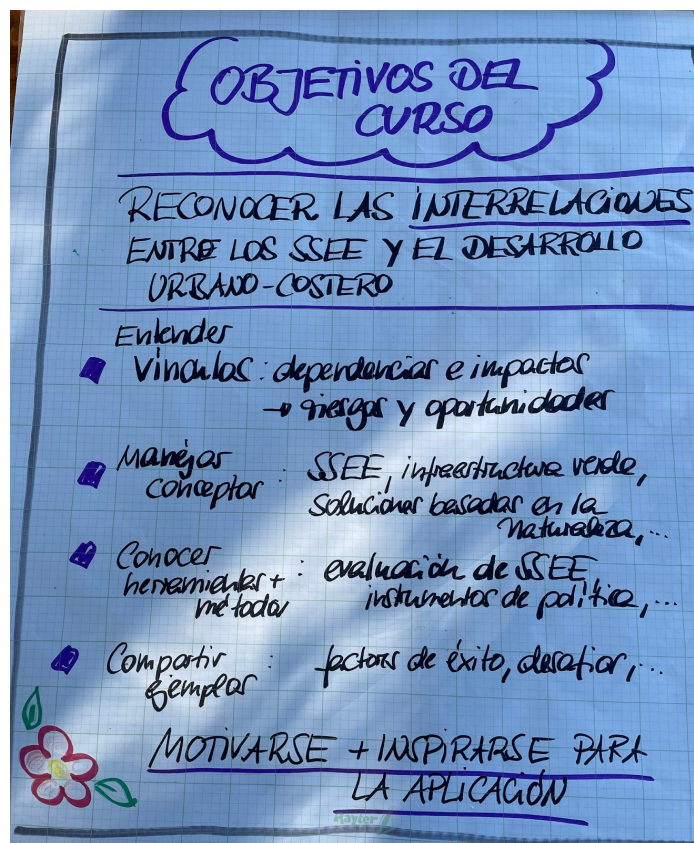 OBJETIVOS DEL
CURSO
RECONOCER LAS INTERRELACIONES
ENTRE LOS SSEE Y EL DESARROLLO
URBANO-COSTERO
Entender
vínculos : dependencias e impactos
→ riesgos y oportunidades
Manejar
conceptos : SSEE, infraestructura verde,
soluciones basadas en la
naturaleza,...
Conocer
herramientas +
métodos : evaluación de SSEE
instrumentos de política,...
Compartir
ejemplos : factores de éxito, desafíos,...
MOTIVARSE + INSPIRARSE PARA
LA APLICACIÓN
Rayter